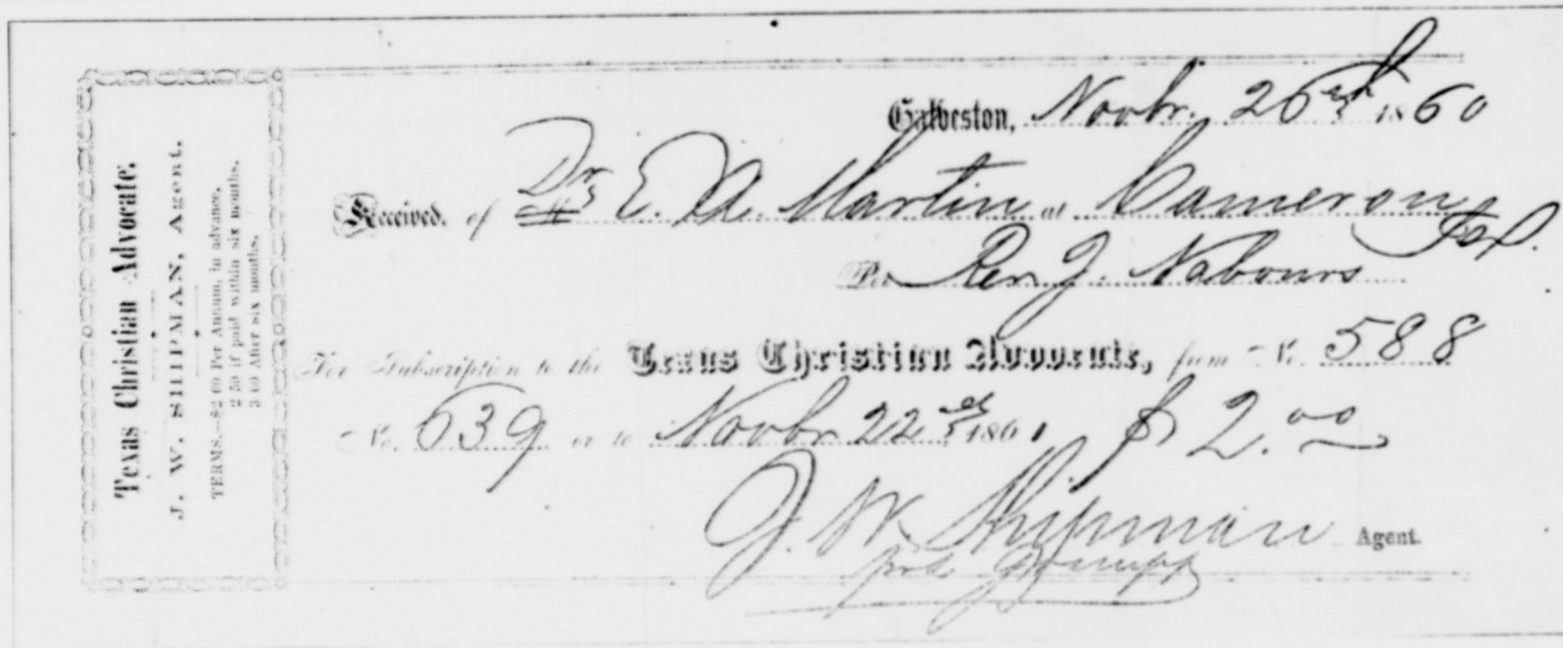 Texas Christian Advocate.
J. W. SHIPMAN, Agent.
TERMS.—$2 00 Per Annum, in advance.
2 50 if paid within six months.
3 00 After six months.
Galveston, Novbr. 26th 1860
Received, of Dr E. A. Martin at Cameron Tex.
Per Rev J. Nabours
For Subscription to the Texas Christian Advocate, from No. 588
No. 639 or to Novbr 22nd 1861 $2.00
J. W. Shipman Agent.